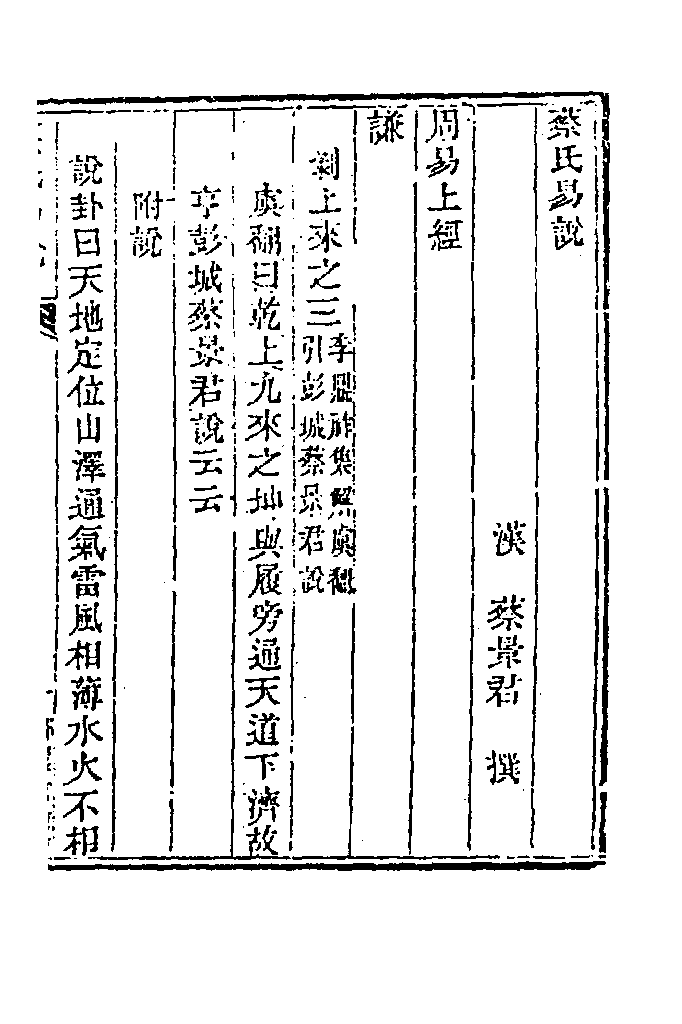 蔡氏易說
漢　蔡景君　撰
周易上經
謙
剝上來之三李鼎祚集解虞翻
引彭城蔡景君說
虞翻曰乾上九來之坤與履旁通天道下濟故
亨彭城蔡景君說云云
附說
說卦曰天地定位山澤通氣雷風相薄水火不相